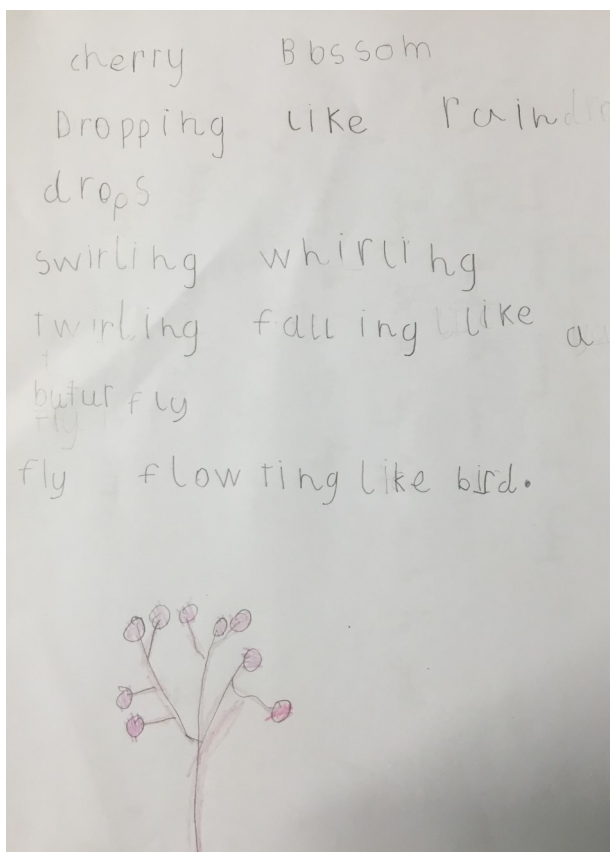 cherry Bbssom
Dropping like rain
drops
swirling whirling
twirling falling like a
buturfly
fly flowting like bird.